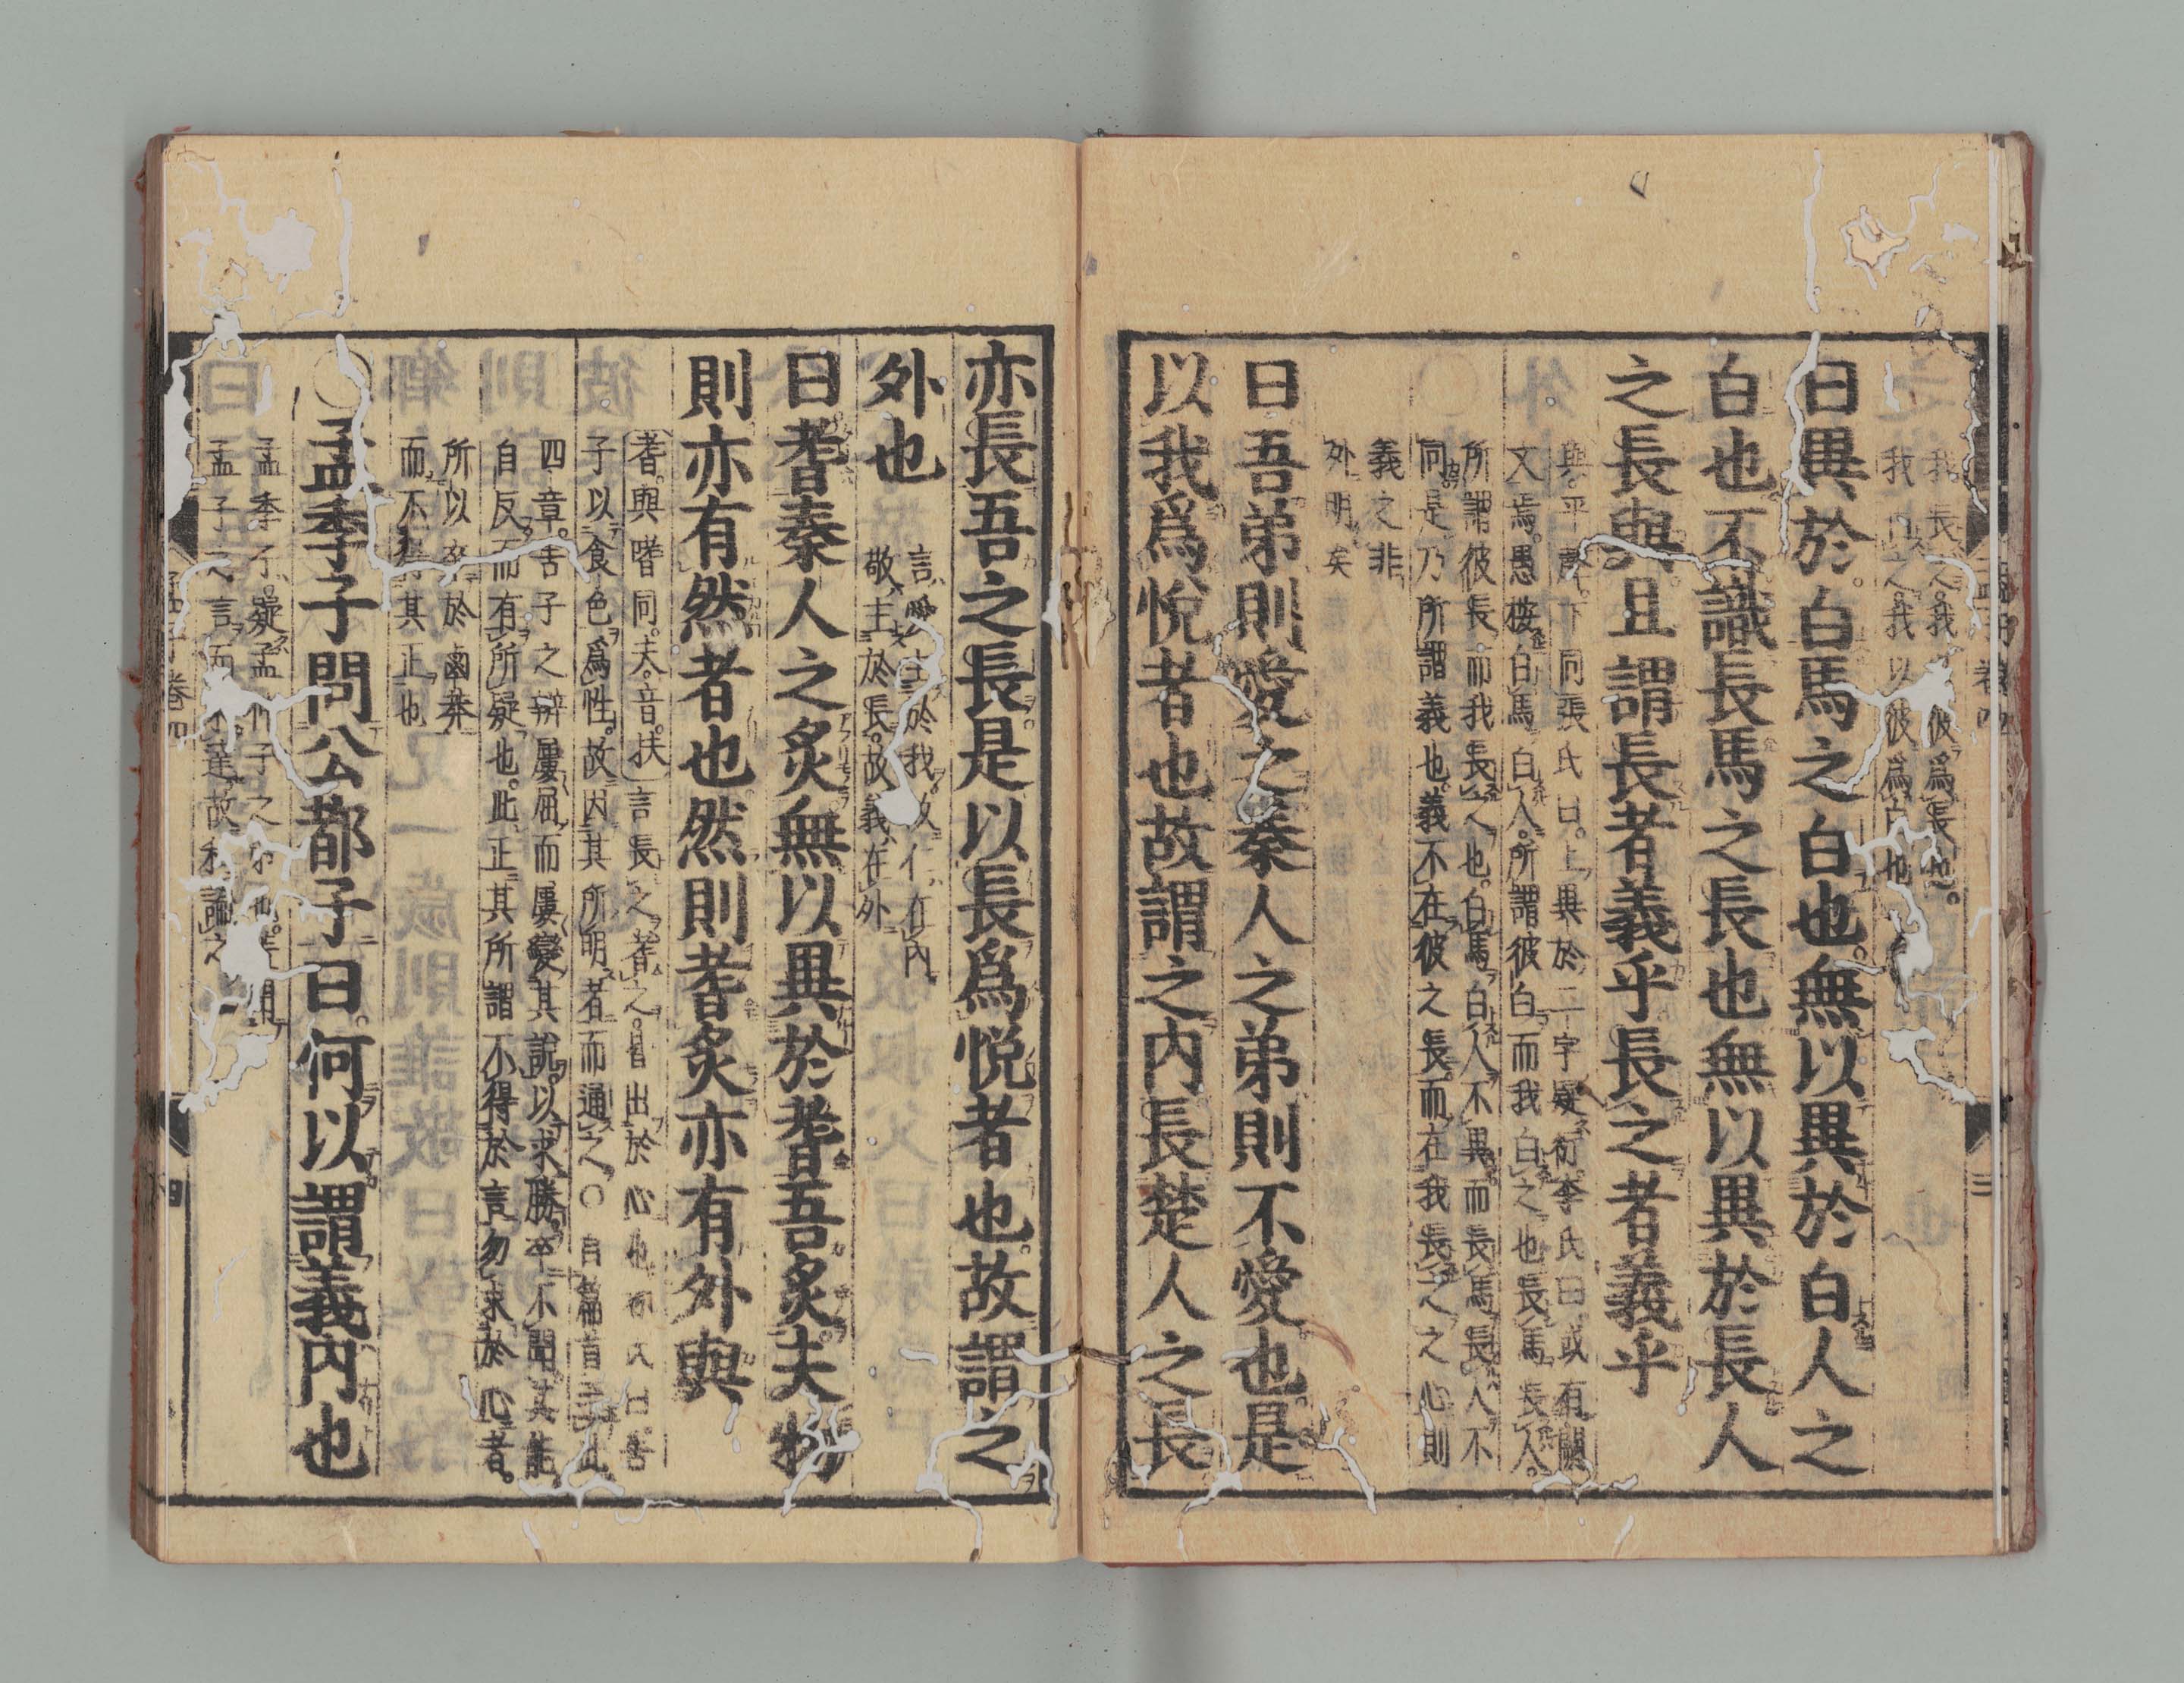 我長之我以彼爲長也
我白之我以彼爲白也
曰異於白馬之白也無以異於白人之
白也不識長馬之長也無以異於長人
之長與且謂長者義乎長之者義乎
與平聲下同張氏曰上異於二字疑衍李氏曰或有闕
文焉愚按白馬白人所謂彼白而我白之也長馬長人
所謂彼長而我長之也白馬白人不異而長馬長人不
同是乃所謂義也義不在彼之長而在我長之之心則
義之非
外明矣
曰吾弟則愛之秦人之弟則不愛也是
以我爲悅者也故謂之內長楚人之長
亦長吾之長是以長爲悅者也故謂之
外也
言愛主於我故仁在內
敬主於長故義在外
曰耆秦人之炙無以異於耆吾炙夫物
則亦有然者也然則耆炙亦有外與
耆與嗜同夫音扶言長之耆之皆出於心也林氏曰告
子以食色爲性故因其所明者而通之○自篇首至此
四章告子之辯屢屈而屢變其說以求勝卒不聞其能
自反而有所疑也此正其所謂不得於言勿求於心者
所以卒於鹵莽
而不得其正也
○孟季子問公都子曰何以謂義內也
孟季子疑孟仲子之弟也蓋聞
孟子之言而未達故私論之
孟子卷四
四